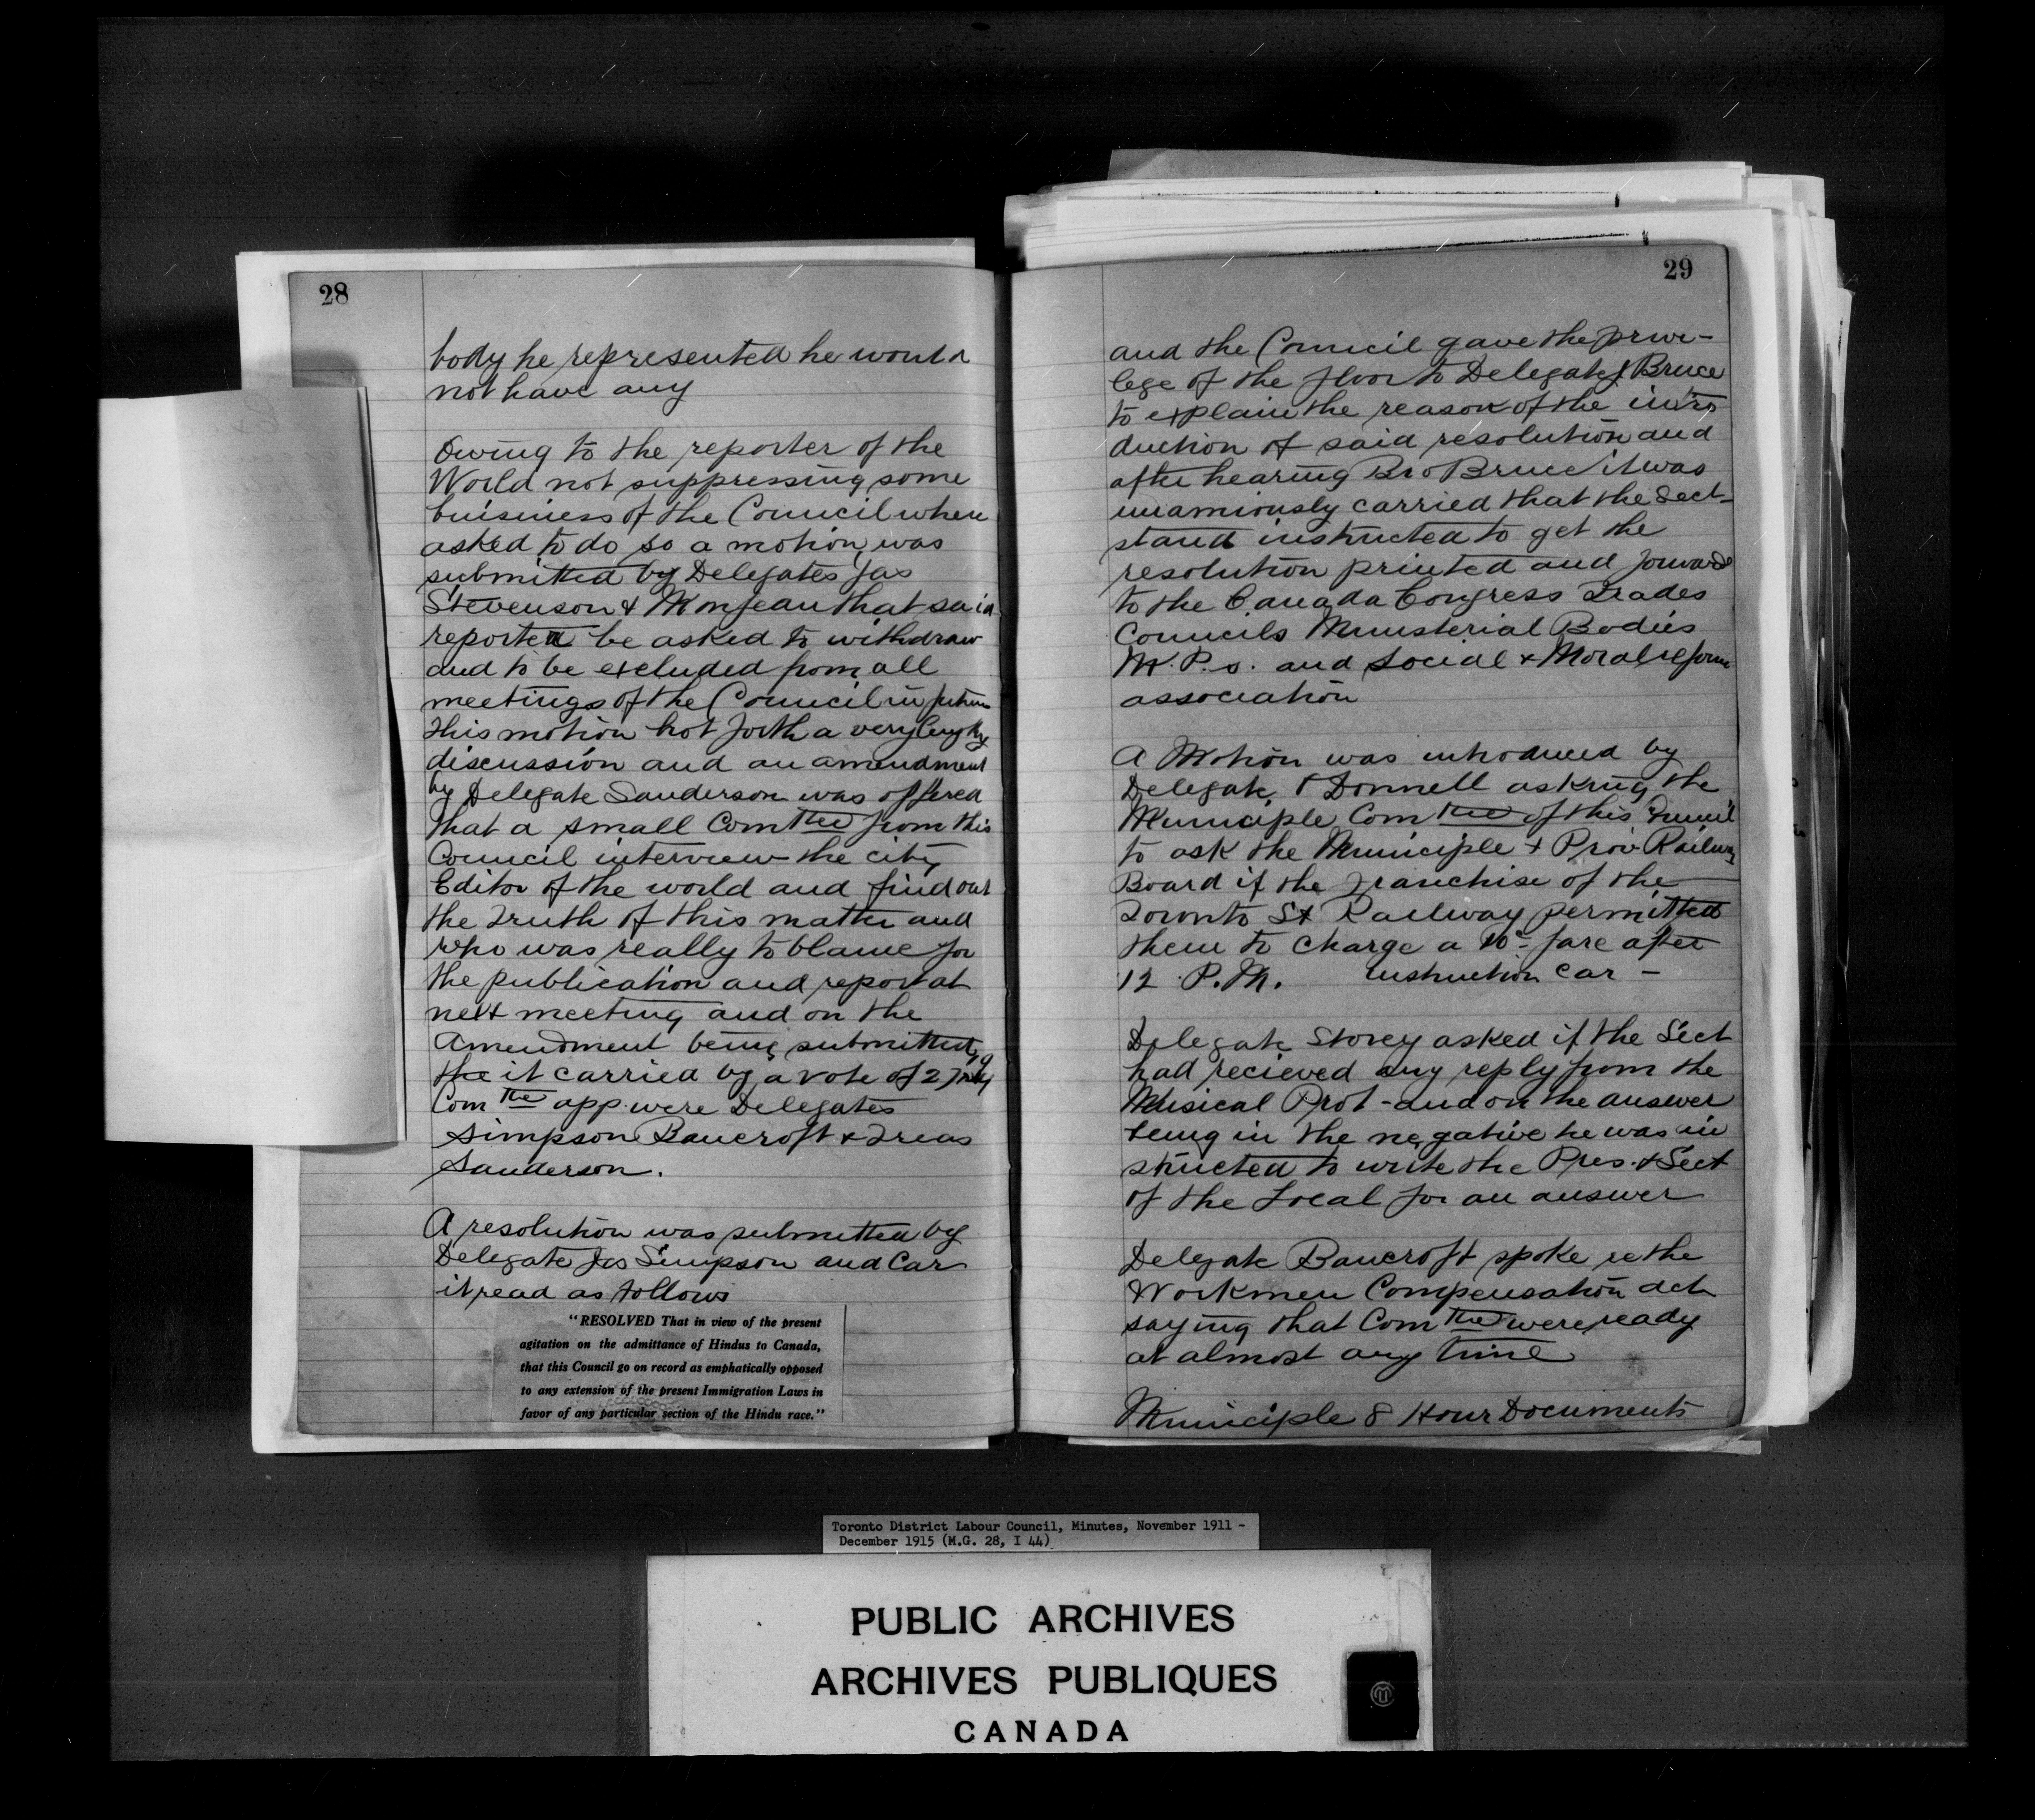 28
body he represented he would
not have any
Owing to the reporter of the
World not suppressing some
buisiness of the Council when
asked to do so a motion was
submitted by Delegates Jas
Stevenson & Monjeau that said
reporter be asked to withdraw
and to be excluded from all
meetings of the Council in future
this motion bot forth a very lengthy
discussion and an amendment
by Delegate Sanderson was offered
that a small Comttee from this
Council interview the city
Editor of the world and find out
the truth of this matter and
who was really to blame for
the publication and report at
next meeting and on the
Amendment being submitted
the it carried by a vote of 27
Comttee app. were Delegates
Simpson Bancroft & Treas
Sanderson.
A resolution was submitted by
Delegate Jas Simpson and Car
it read as follows
"RESOLVED That in view of the present
agitation on the admittance of Hindus to Canada,
that this Council go on record as emphatically opposed
to any extension of the present Immigration Laws in
favor of any particular section of the Hindu race."
29
and the Council gave the privi-
lege of the floor to Delegate Bruce
to explain the reason of the intro
duction of said resolution and
after hearing Bro Bruce it was
unamiously carried that the Sect-
stand instructed to get the
resolution printed and forward
to the Canada Congress Trades
Councils Ministerial Bodies
M.P.s. and Social & Moral reform
association
A Motion was introduced by
Delegate O Donnell asking the
Municiple Comttee of this Council
to ask the Municiple & Prov. Railway
Board if the Franchise of the
Toronto St Railway permitted
them to charge a 10c fare after
12 P.M. instruction car -
Delegate Storey asked if the Sect
had recieved any reply from the
Musical Prot - and on the answer
being in the negative he was in
structed to write the Pres. & Sect
of the Local for an answer
Delegate Bancroft spoke re the
Workmen Compensation Act
saying that Comttee were ready
at almost any time
Municiple 8 Hour Documents
Toronto District Labour Council, Minutes, November 1911 -
December 1915 (M.G. 28, I 44)
PUBLIC ARCHIVES
ARCHIVES PUBLIQUES
CANADA